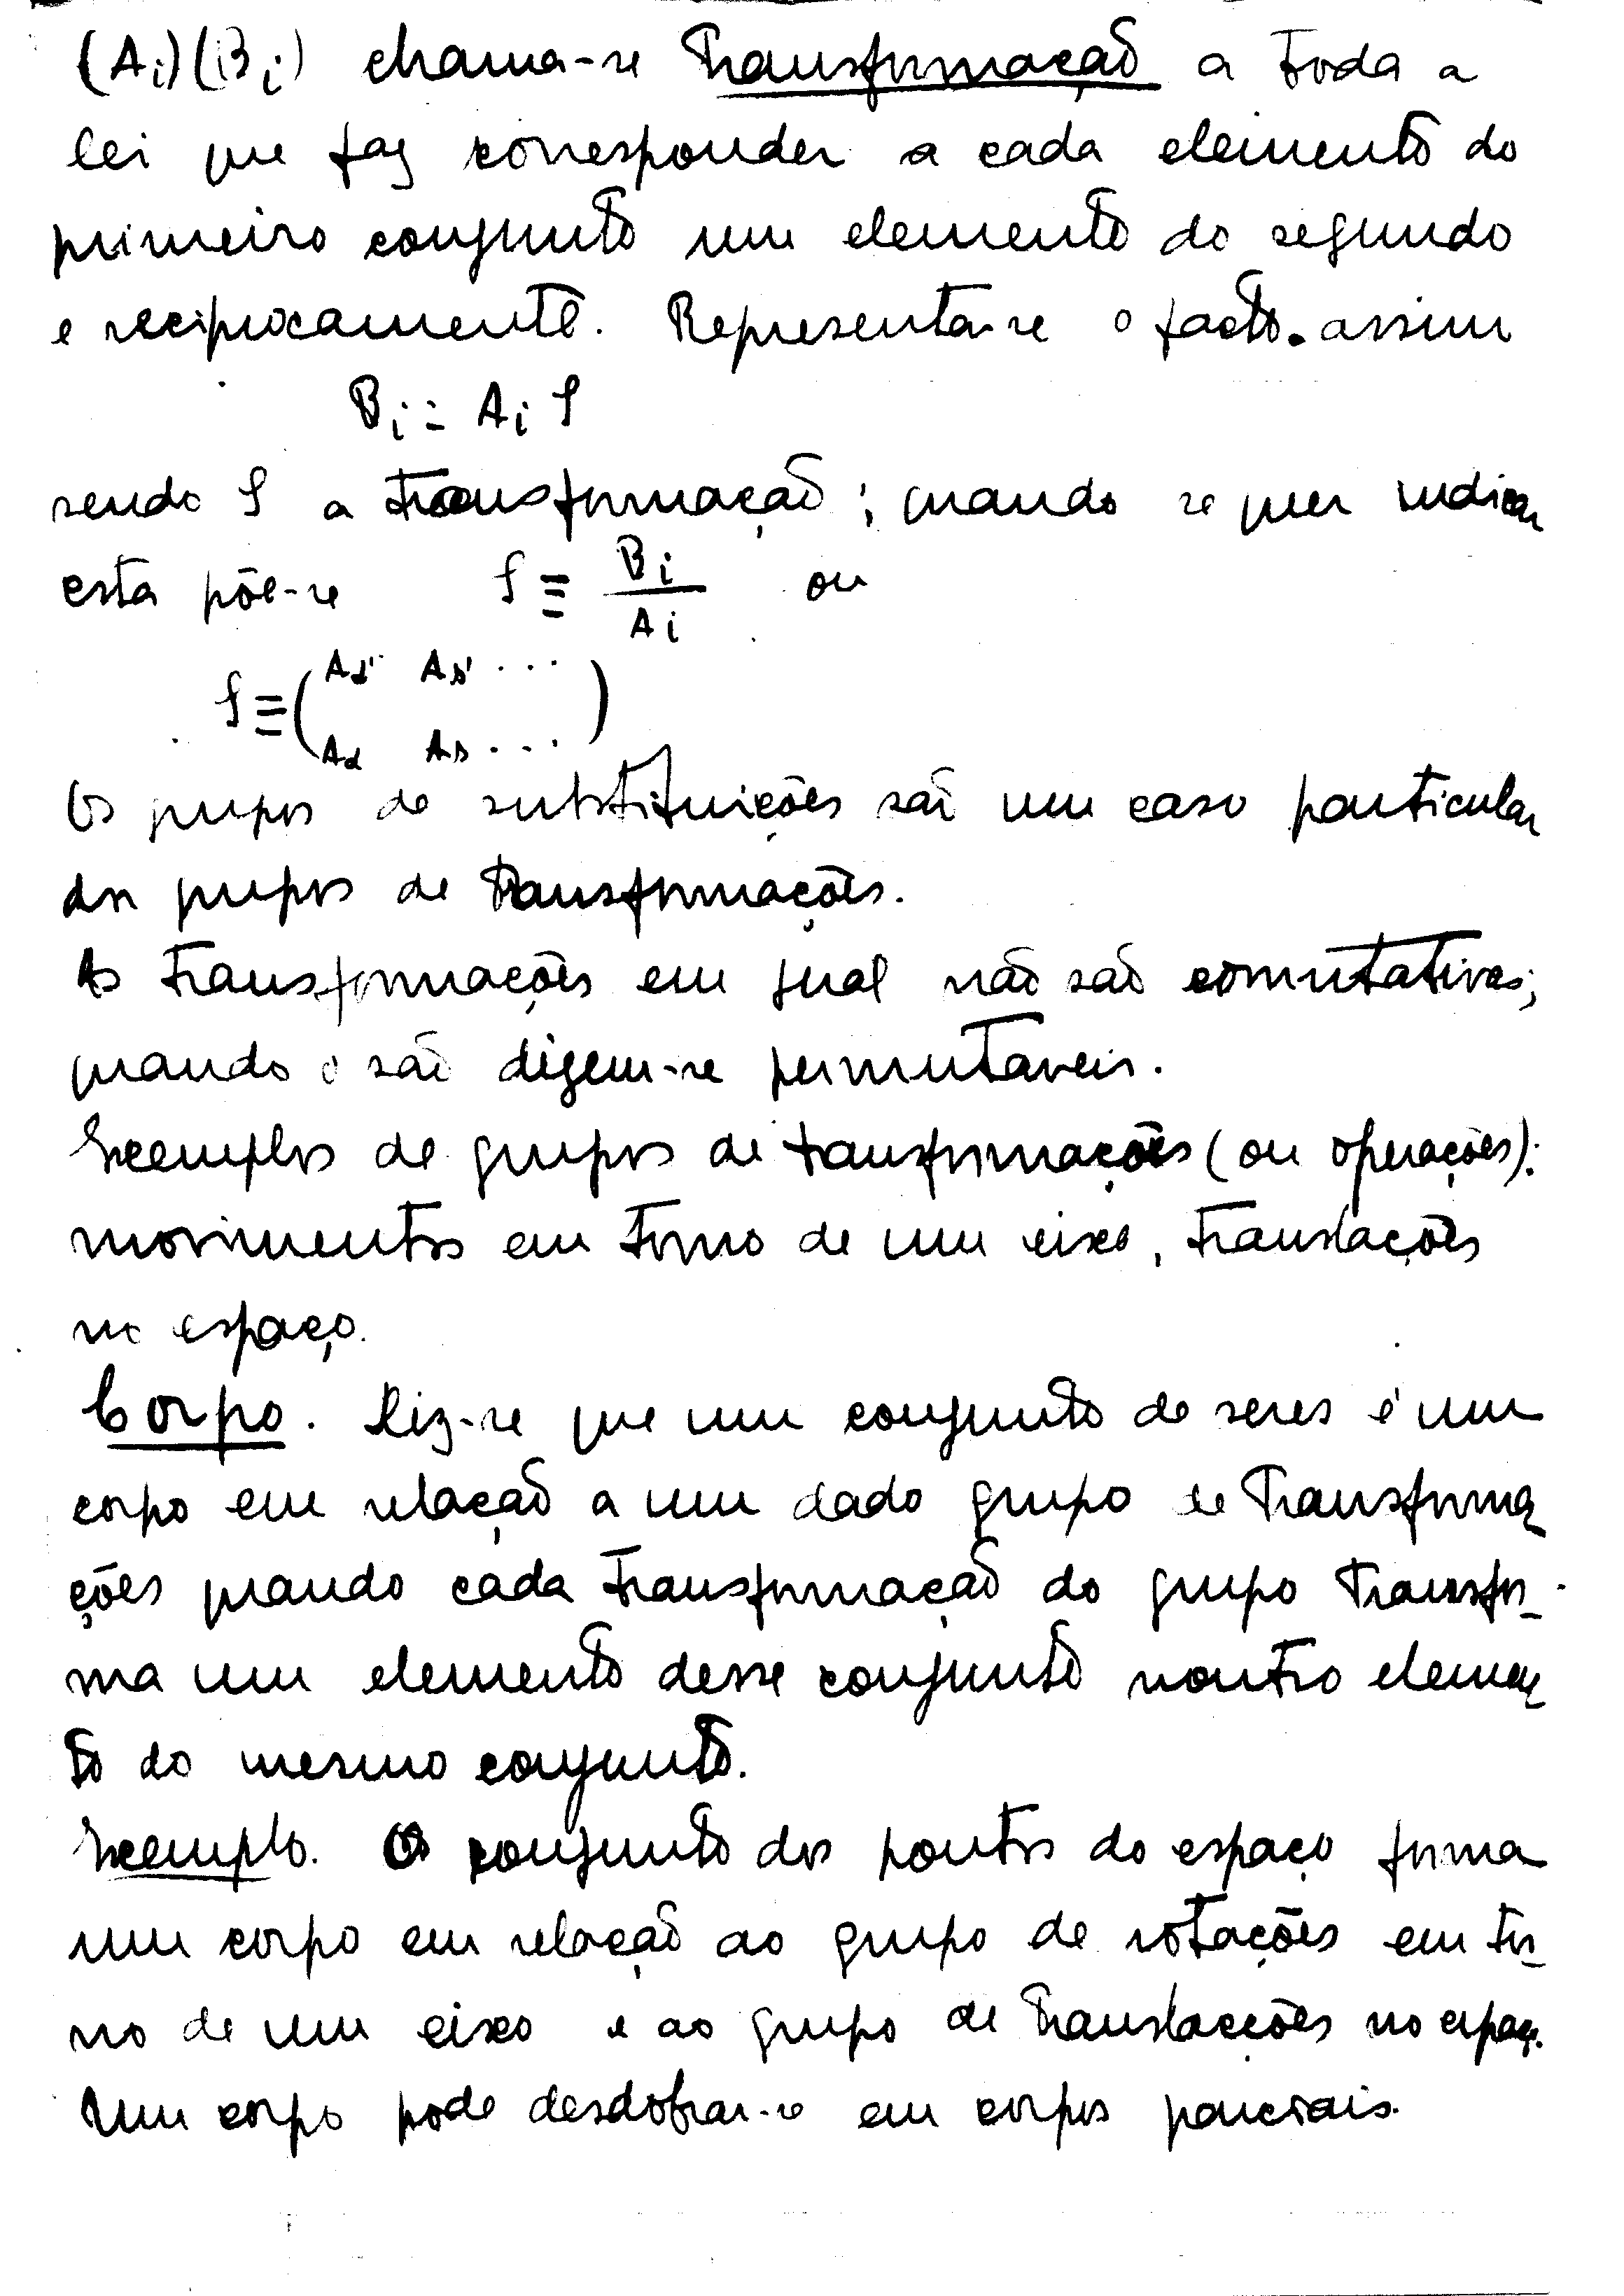 (Ai)(Bi) chama-se Transformação a toda a
lei que faz corresponder a cada elemento do
primeiro conjunto um elemento do segundo
e reciprocamente. Representa-se o facto assim
Bi = Ai S
sendo S a transformação; quando se quer indicar
esta põe-se S ≡ Bi/Ai ou
S ≡ (Aα' As' ...
Aα As ...)
Os grupos de substituições são um caso particular
dos grupos de Transformações.
As transformações em geral não são comutativas;
quando o são dizem-se permutaveis.
Exemplos de grupos de transformações (ou operações):
movimentos em torno de um eixo, translações
no espaço.
Corpo. Diz-se que um conjunto de seres é um
corpo em relação a um dado grupo de Transforma
ções quando cada transformação do grupo transfor-
ma um elemento desse conjunto noutro elemen
to do mesmo conjunto.
Exemplo. O conjunto dos pontos do espaço forma
um corpo em relação ao grupo de rotações em tor-
no de um eixo e ao grupo de translacções no espaço.
Um corpo pode desdobrar-se em corpos parciais.